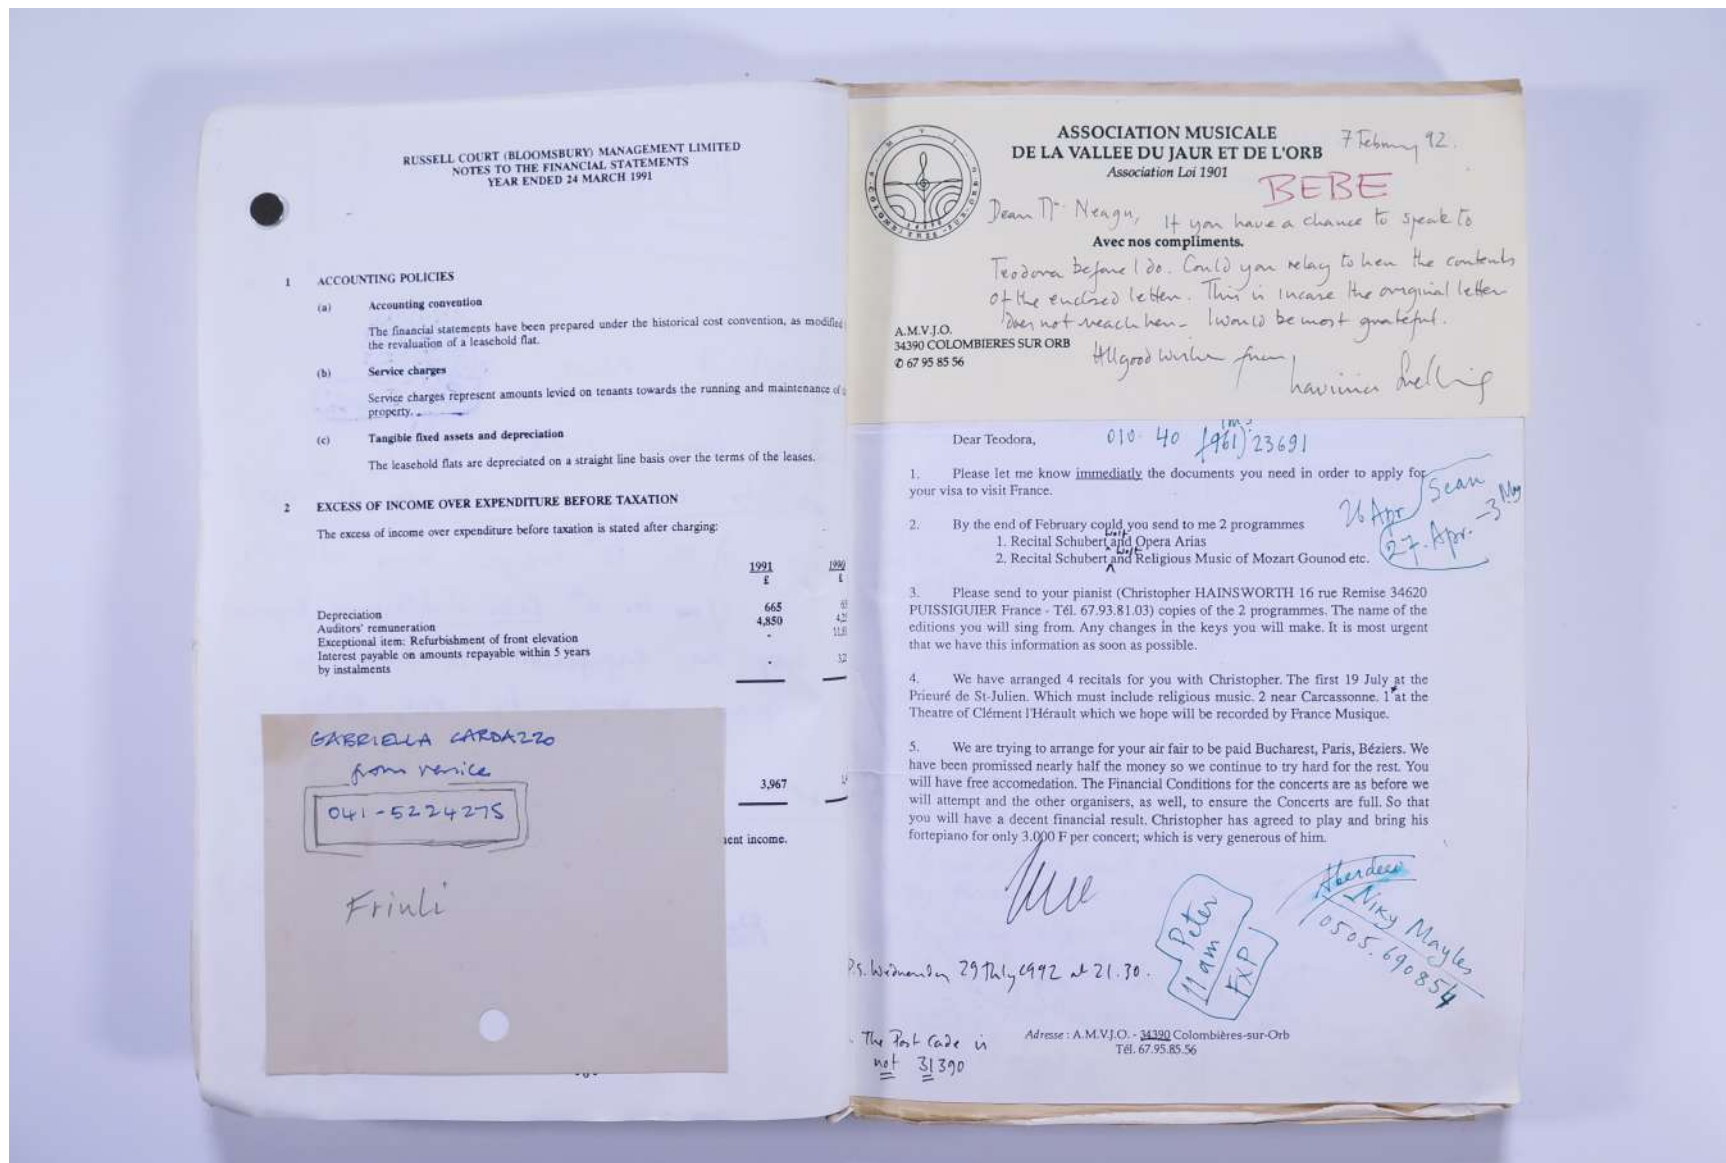 RUSSELL COURT (BLOOMSBURY) MANAGEMENT LIMITED
NOTES TO THE FINANCIAL STATEMENTS
YEAR ENDED 24 MARCH 1991
1 ACCOUNTING POLICIES
(a) Accounting convention
The financial statements have been prepared under the historical cost convention, as modified
the revaluation of a leasehold flat.
(b) Service charges
Service charges represent amounts levied on tenants towards the running and maintenance of
property.
(c) Tangible fixed assets and depreciation
The leasehold flats are depreciated on a straight line basis over the terms of the leases.
2 EXCESS OF INCOME OVER EXPENDITURE BEFORE TAXATION
The excess of income over expenditure before taxation is stated after charging:
1991 1990
£ £
Depreciation 665
Auditors' remuneration 4,850
Exceptional item: Refurbishment of front elevation -
Interest payable on amounts repayable within 5 years
by instalments -
3,967
income.
GABRIELLA CARDAZZO
from venice
041-5224275
Friuli
ASSOCIATION MUSICALE
DE LA VALLEE DU JAUR ET DE L'ORB
Association Loi 1901
7 February 92.
BEBE
Dear Mr Neagu, If you have a chance to speak to
Avec nos compliments.
Teodora before I do. Could you relay to her the contents
of the enclosed letter. This is incase the original letter
does not reach her. I would be most grateful.
A.M.V.J.O.
34390 COLOMBIERES SUR ORB
✆ 67 95 85 56
All good wishes from,
Lavinia
Dear Teodora, 010 40 (961) 23691
1. Please let me know immediatly the documents you need in order to apply for
your visa to visit France.
Sean
26 Apr
27. Apr. - 3 May
2. By the end of February could you send to me 2 programmes
1. Recital Schubert Wolf and Opera Arias
2. Recital Schubert Wolf and Religious Music of Mozart Gounod etc.
3. Please send to your pianist (Christopher HAINSWORTH 16 rue Remise 34620
PUISSIGUIER France - Tél. 67.93.81.03) copies of the 2 programmes. The name of the
editions you will sing from. Any changes in the keys you will make. It is most urgent
that we have this information as soon as possible.
4. We have arranged 4 recitals for you with Christopher. The first 19 July at the
Prieuré de St-Julien. Which must include religious music. 2 near Carcassonne. 1 at the
Theatre of Clément l'Hérault which we hope will be recorded by France Musique.
5. We are trying to arrange for your air fair to be paid Bucharest, Paris, Béziers. We
have been promissed nearly half the money so we continue to try hard for the rest. You
will have free accomedation. The Financial Conditions for the concerts are as before we
will attempt and the other organisers, as well, to ensure the Concerts are full. So that
you will have a decent financial result. Christopher has agreed to play and bring his
fortepiano for only 3.000 F per concert; which is very generous of him.
Aberdeen
Niky Mayles
0505.690854
Peter
11 am
FXP
P.S. Wednesday 29 July 1992 at 21.30.
The Post Code is
not 31390
Adresse : A.M.V.J.O. - 34390 Colombières-sur-Orb
Tél. 67.95.85.56